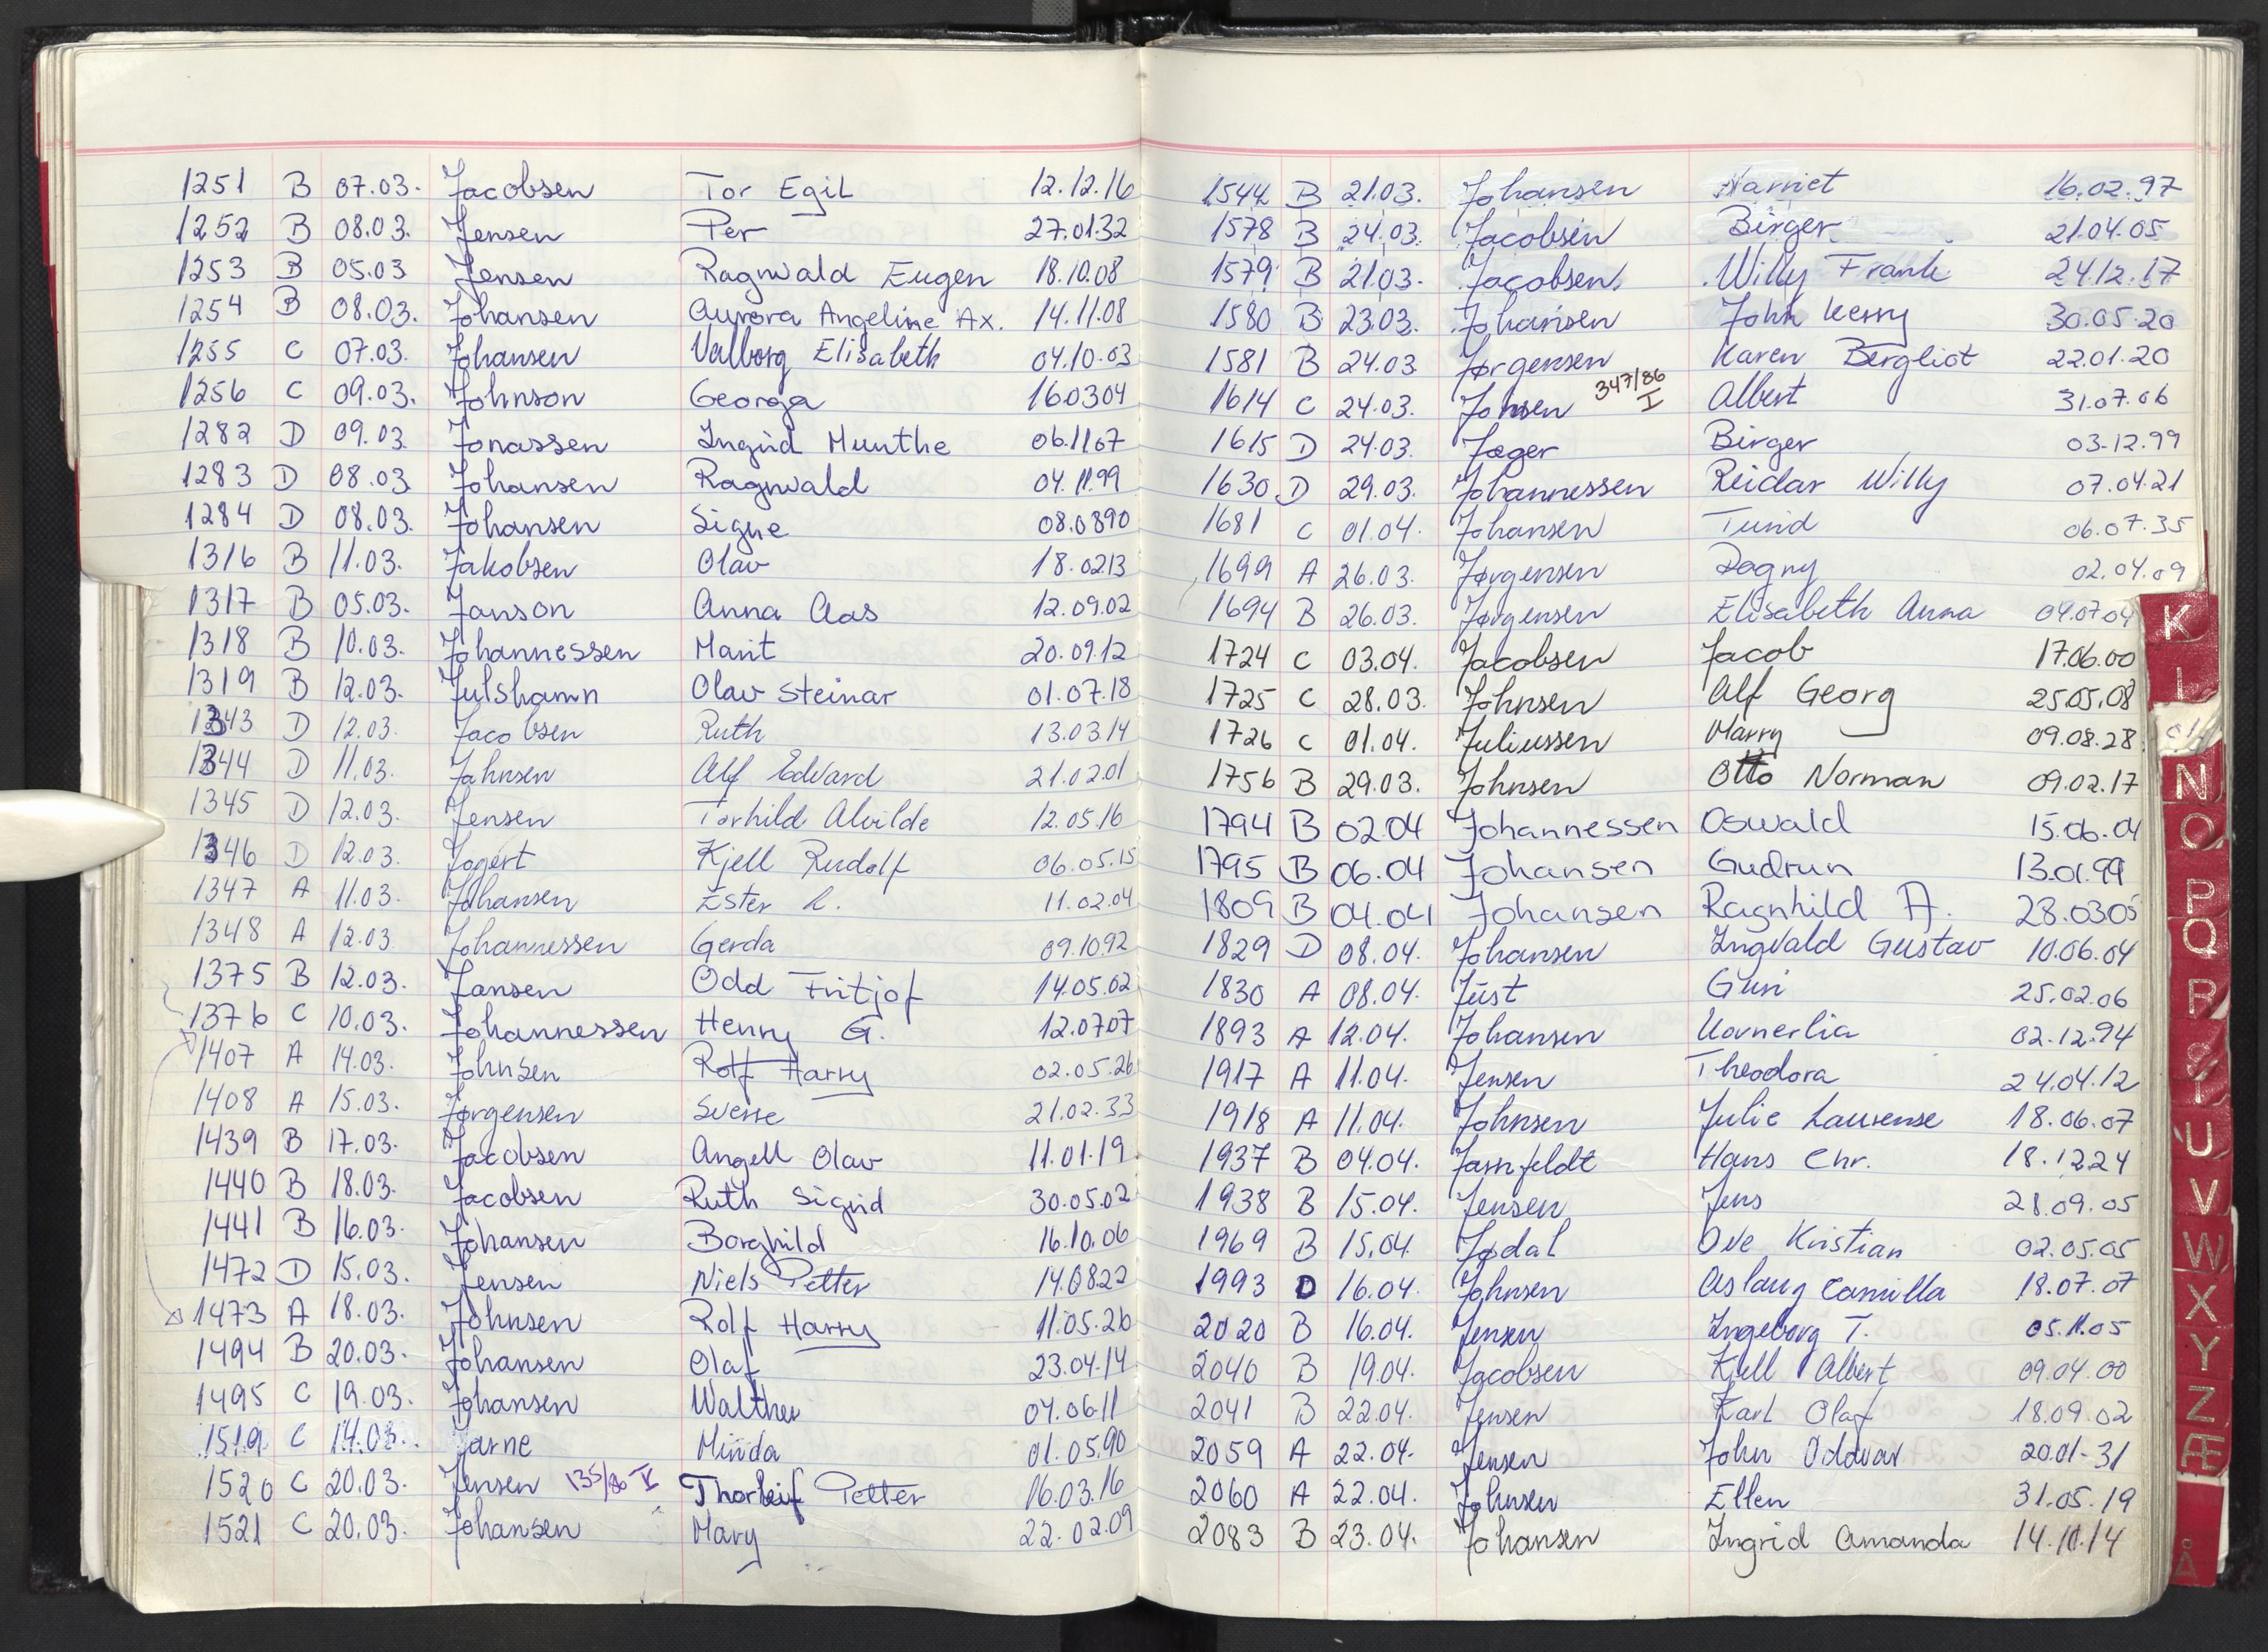 1251 B 07.03. Jacobsen Tor Egil 12.12.16
1252 B 08.03. Jensen Per 27.01.32
1253 B 05.03 Jensen Ragnvald Eugen 18.10.08
1254 B 08.03. Johansen Aurora Angeline Ax. 14.11.08
1255 C 07.03. Johansen Valborg Elisabeth 04.10.03
1256 C 09.03. Johnson Georga 160304
1282 D 09.03 Jonassen Ingrid Munthe 06.1107
1283 D 08.03 Johansen Ragnvald 04.11.99
1284 D 08.03. Johansen Signe 08.0890
1316 B 11.03. Jakobsen Olav 18.0213
1317 B 05.03. Janson Anna Aas 12.09.02
1318 B 10.03. Johannessen Marit 20.09.12
1319 B 12.03. Julshamn Olav Steinar 01.07.18
1343 D 12.03. Jacobsen Ruth 13.03.14
1344 D 11.03. Jahnsen Alf Edvard 21.02.01
1345 D 12.03. Jensen Torhild Alvilde 12.05.16
1346 D 12.03. Jogert Kjell Rudolf 06.05.15
1347 A 11.03. Johansen Ester L. 11.02.04
1348 A 12.03. Johannessen Gerda 09.1092
1375 B 12.03. Jansen Odd Fritjof 14.05.02
1376 C 10.03. Johannessen Henry G. 12.0707
1407 A 14.03. Johnsen Rolf Harry 02.05.26
1408 A 15.03. Jørgensen Sverre 21.02.33
1439 B 17.03. Jacobsen Angell Olav 11.01.19
1440 B 18.03. Jacobsen Ruth Sigrid 30.05.02
1441 B 16.03. Johansen Borghild 16.10.06
1472 D 15.03. Jensen Niels Petter 14.0822
1473 A 18.03. Johnsen Rolf Harry 11.05.26
1494 B 20.03. Johansen Olaf 23.04.14
1495 C 19.03. Johansen Walther 04.0611
1519 C 14.03. Jarne Minda 01.05.90
1520 C 20.03. Jensen 135/86 Thorleif Petter 16.03.16
1521 C 20.03. Johansen Mary 22.02.09
1544 B 21.03. Johansen Harriet 16.02.97
1578 B 24.03. Jacobsen Birger 21.04.05
1579 B 21.03. Jacobsen Willy Frank 24.12.17
1580 B 23.03. Johansen John Kerry 30.05.20
1581 B 24.03 Jørgensen Karen Bergliot 22.01.20
1614 C 24.03. Johnsen 347/86 I Albert 31.07.06
1615 D 24.03. Jæger Birger 03.12.99
1630 D 29.03. Johannessen Reidar Willy 07.04.21
1681 C 01.04. Johansen Turid 06.07.35
1699 A 26.03. Jørgensen Dagny 02.04.09
1694 B 26.03. Jørgensen Elisabeth Anna 04.07.04
1724 C 03.04. Jacobsen Jacob 17.06.00
1725 C 28.03. Johnsen Alf Georg 25.05.08
1726 C 01.04. Juliussen Harry 09.08.28
1756 B 29.03. Johnsen Otto Norman 09.02.17
1794 B 02.04 Johannessen Oswald 15.06.04
1795 B 06.04 Johansen Gudrun 13.01.99
1809 B 04.04 Johansen Ragnhild A. 28.0305
1829 D 08.04. Johansen Ingvald Gustav 10.06.04
1830 A 08.04. Just Guri 25.02.06
1893 A 12.04. Johansen 02.12.94
1917 A 11.04. Jensen Theodora 24.04.12
1918 A 11.04. Johnsen Julie Laurense 18.06.07
1937 B 04.04. Jarnfeldt Hans Chr. 18.1224
1938 B 15.04. Jensen Jens 28.09.05
1969 B 15.04. Jødal Ove Kristian 02.05.05
1993 D 16.04. Johnsen Aslaug Camilla 18.07.07
2020 B 16.04. Jensen Ingeborg T. 05.11.05
2040 B 19.04. Jacobsen Kjell Albert 09.04.00
2041 B 22.04. Jensen Karl Olaf 18.09.02
2059 A 22.04. Jensen John Oddvar 20.01-31
2060 A 22.04. Johnsen Ellen 31.05.19
2083 B 23.04. Johansen Ingrid Amanda 14.10.14
K
N
O
P
Q
R
U
V
W
X
Y
Z
Æ
Å